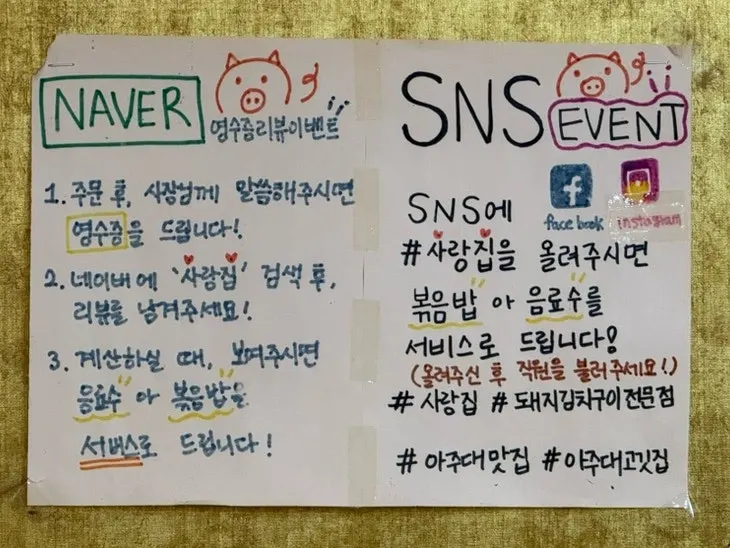 NAVER
영수증리뷰이벤트
1. 주문 후, 사장님께 말씀해주시면
영수증을 드립니다!
2. 네이버에 '사랑집' 검색 후,
리뷰를 남겨주세요!
3. 계산하실 때, 보여주시면
음료수 아 볶음밥을
서비스로 드립니다!
SNS EVENT
facebook instagram
SNS에
#사랑집을 올려주시면
볶음밥 아 음료수를
서비스로 드립니다!
(올려주신 후 직원을 불러주세요!)
# 사랑집 # 돼지김치구이전문점
# 아주대맛집 #아주대고깃집